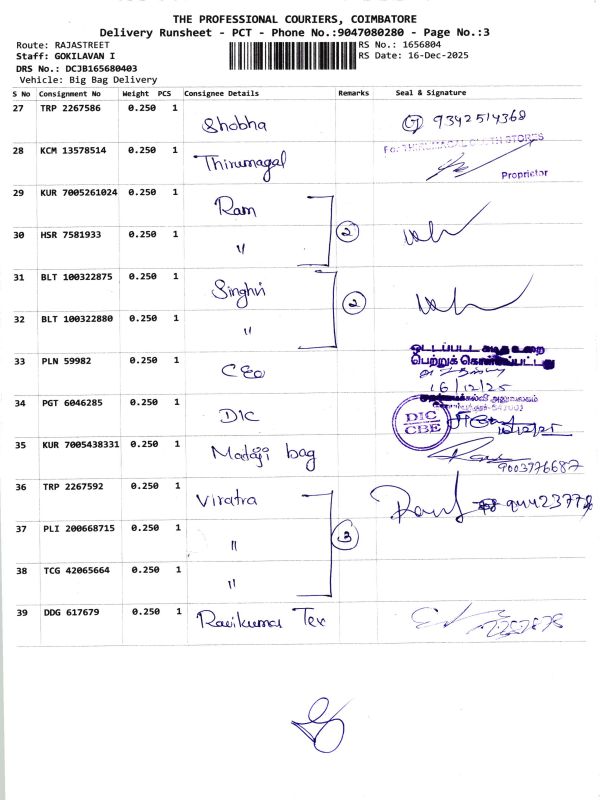 THE PROFESSIONAL COURIERS, COIMBATORE
Delivery Runsheet - PCT - Phone No.:9047080280 - Page No.:3
Route: RAJASTREET
RS No.: 1656804
Staff: GOKILAVAN I
RS Date: 16-Dec-2025
DRS No.: DCJB165680403
Vehicle: Big Bag Delivery
S No Consignment No Weight PCS Consignee Details Remarks Seal & Signature
27 TRP 2267586 0.250 1 Shobha 9342514368
28 KCM 13578514 0.250 1 Thirumagal
For THIRUMAGAL CLOTH STORES
Proprietor
29 KUR 7005261024 0.250 1 Ram
2
30 HSR 7581933 0.250 1 "
31 BLT 100322875 0.250 1 Singhvi
2
32 BLT 100322880 0.250 1 "
ஒட்டப்பட்ட கடித உறை
பெற்றுக் கொள்ளப்பட்டது
33 PLN 59982 0.250 1 CEO
16/12/25
34 PGT 6046285 0.250 1 DIC
DIC
CBE
35 KUR 7005438331 0.250 1 Mataji bag
9003776687
36 TRP 2267592 0.250 1 Viratra
37 PLI 200668715 0.250 1 "
3
38 TCG 42065664 0.250 1 "
39 DDG 617679 0.250 1 Ravikumar Tex